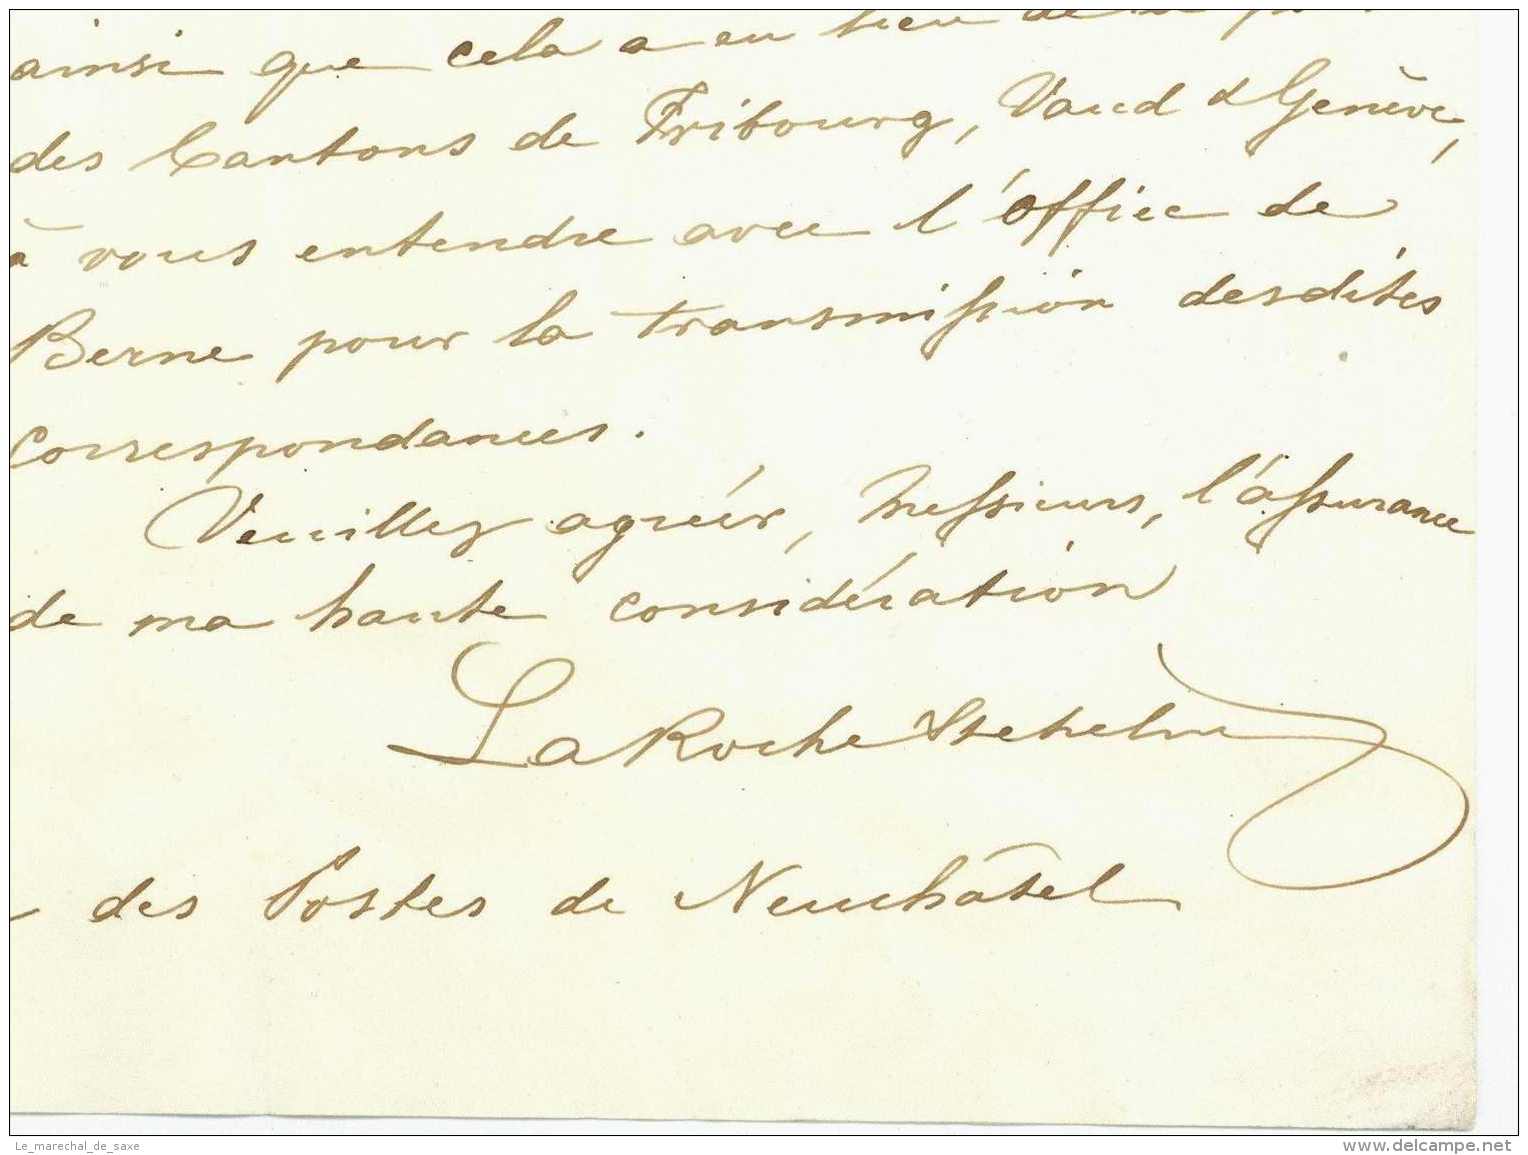 ainsi que cela a eu lieu de la part
des Cantons de Fribourg, Vaud & Genève,
à vous entendre avec l'office de
Berne pour la transmission desdites
correspondances.
Veuillez agréer, Messieurs, l'assurance
de ma haute considération
LaRoche Stehelin
des Postes de Neuchâtel
Le_marechal_de_saxe
www.delcampe.net